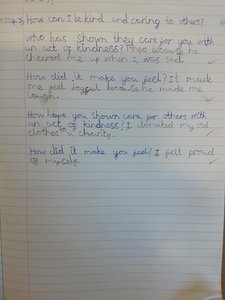 How can I be kind and caring to others?
who has shown they care for you with
an act of kindness? Theo because he
cheered me up when I was sad.
How did it make you feel? It made
me feel joyful because he made me
laugh.
How have you shown care for others with
an act of kindness? I donated my old
clothes to a charity.
How did it make you feel? I felt proud
of myself.